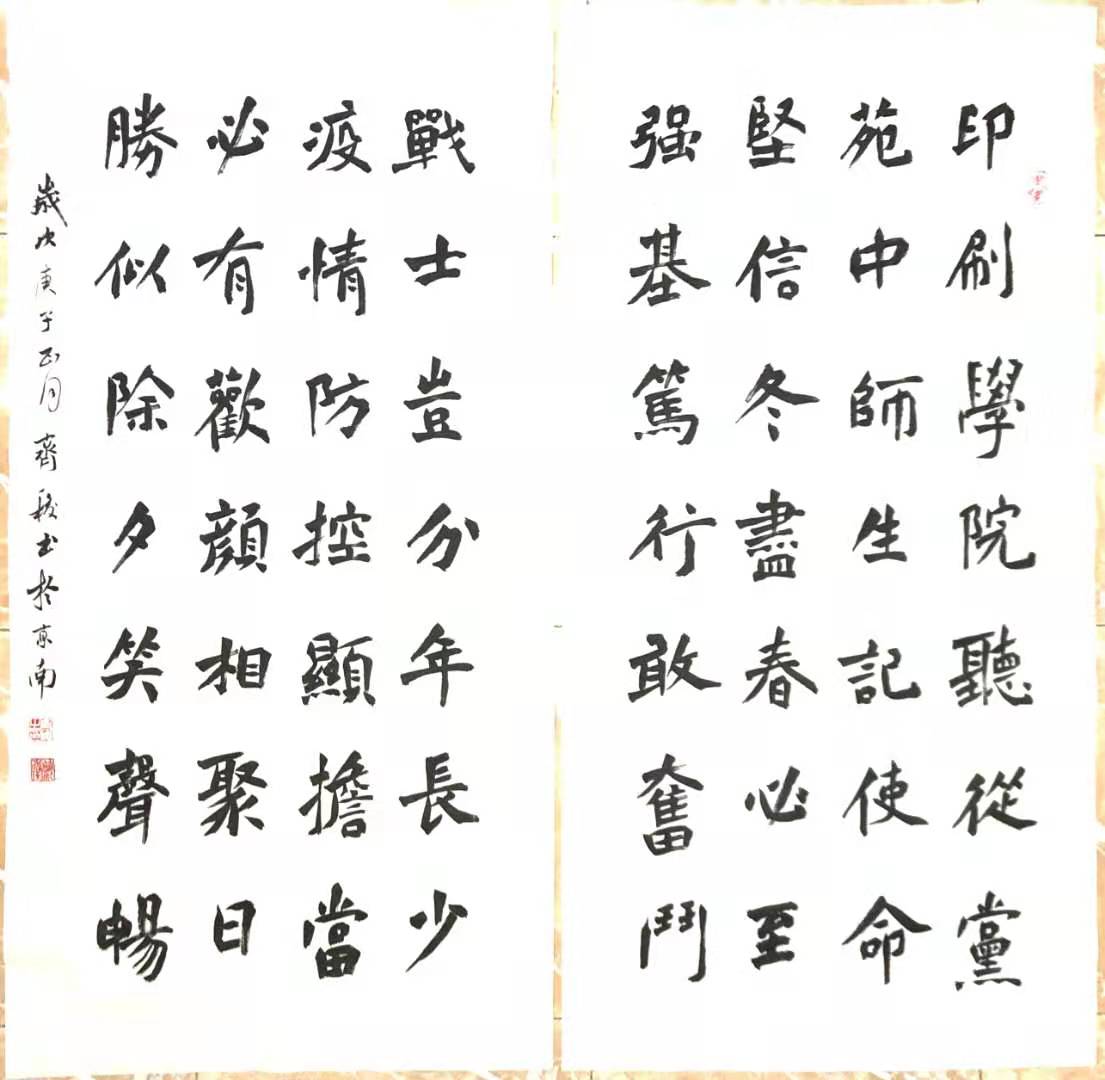 印刷學院聽從黨
苑中師生記使命
堅信冬盡春必至
强基篤行敢奮鬥
戰士豈分年長少
疫情防控顯擔當
必有歡顔相聚日
勝似除夕笑聲暢
歲次庚子正月齊放书於京南